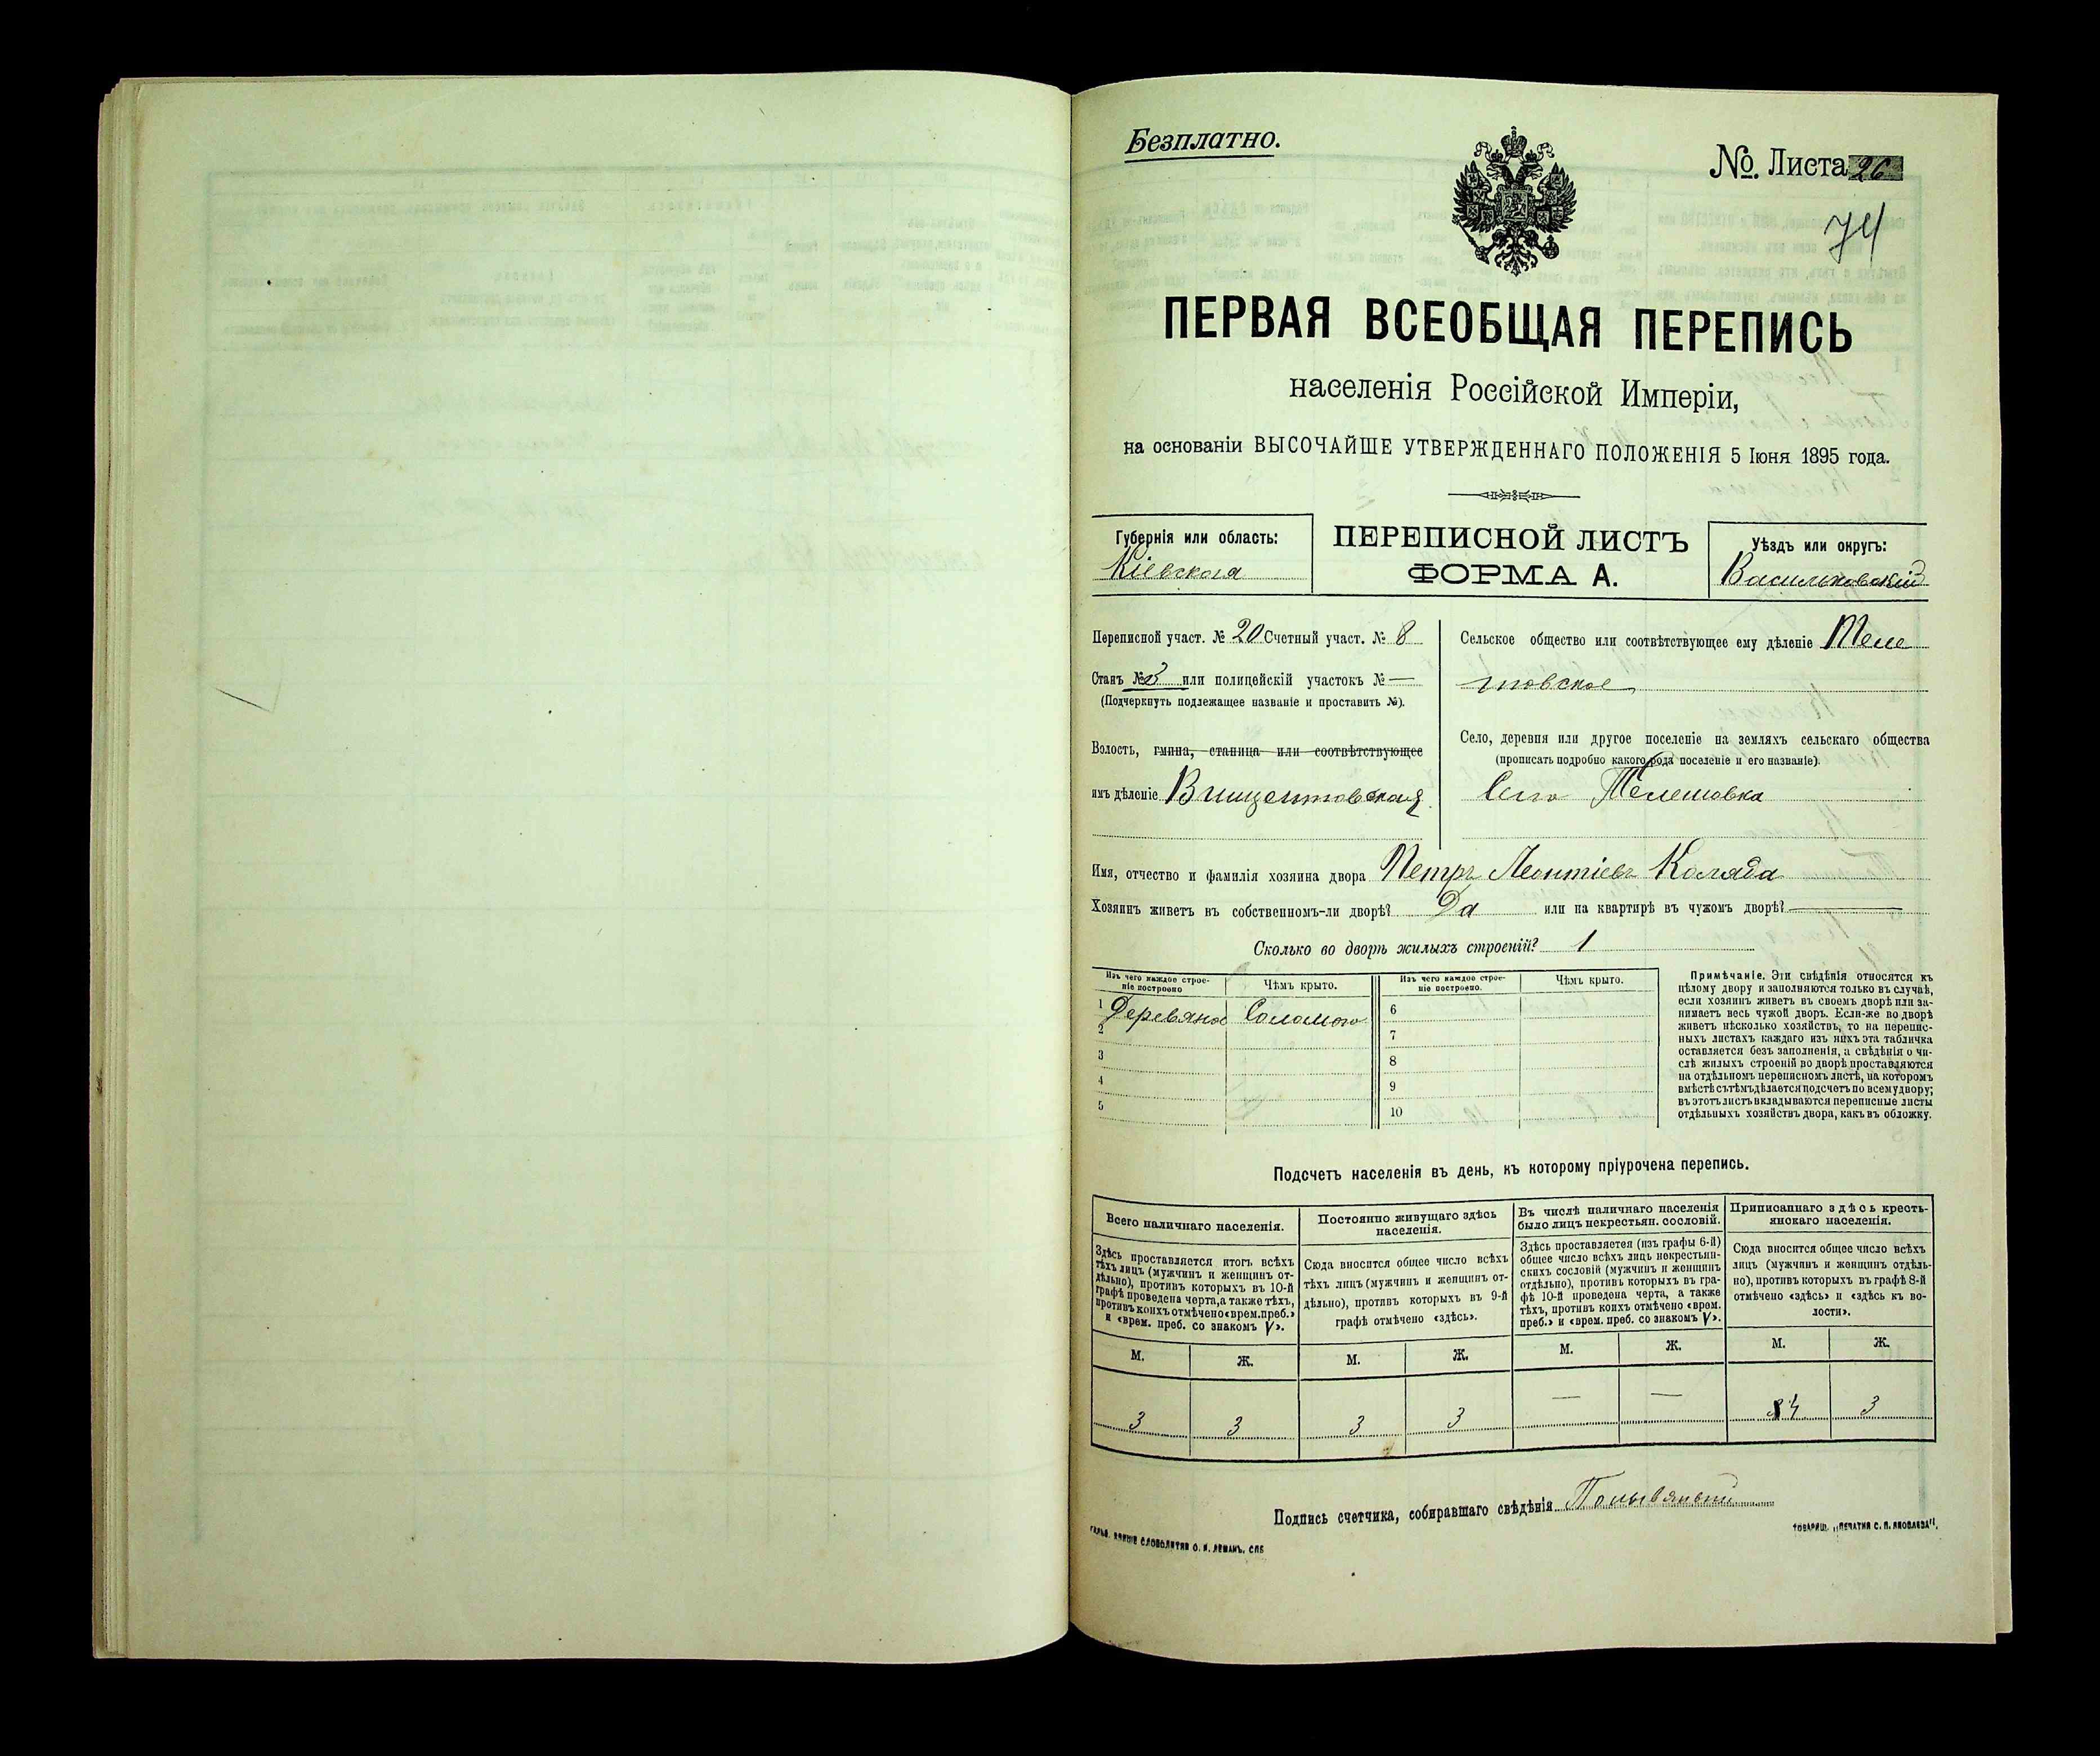 Безплатно.
№ Листа 26
74
ПЕРВАЯ ВСЕОБЩАЯ ПЕРЕПИСЬ
населенія Россійской Имперіи,
на основаніи ВЫСОЧАЙШЕ УТВЕРЖДЕННАГО ПОЛОЖЕНІЯ 5 Іюня 1895 года.
Губернія или область:
Кіевская
ПЕРЕПИСНОЙ ЛИСТЪ
ФОРМА А.
Уѣздъ или округъ:
Васильковскій
Переписной участ. № 20 Счетный участ. № 8
Станъ № 3 или полицейскій участокъ № —
(Подчеркнуть подлежащее названіе и проставить №).
Волость, гмина, станица или соотвѣтствующее
имъ дѣленіе Винцентовская
Сельское общество или соотвѣтствующее ему дѣленіе Теле
шовское
Село, деревня или другое поселеніе на земляхъ сельскаго общества
(прописать подробно какого рода поселеніе и его названіе).
Село Телешовка
Имя, отчество и фамилія хозяина двора Петръ Леонтіевъ Коляда
Хозяинъ живетъ въ собственномъ-ли дворѣ? Да или на квартирѣ въ чужомъ дворѣ? —
Сколько во дворѣ жилыхъ строеній? 1
Изъ чего каждое строе-
ніе построено
Чѣмъ крыто.
Изъ чего каждое строе-
ніе построено.
Чѣмъ крыто.
1 Деревяное Соломою
2
3
4
5
6
7
8
9
10
Примѣчаніе. Эти свѣдѣнія относятся къ
цѣлому двору и заполняются только въ случаѣ,
если хозяинъ живетъ въ своемъ дворѣ или за-
нимаетъ весь чужой дворъ. Если-же во дворѣ
живетъ нѣсколько хозяйствъ, то на перепис-
ныхъ листахъ каждаго изъ нихъ эта табличка
оставляется безъ заполненія, а свѣдѣнія о чи-
слѣ жилыхъ строеній во дворѣ проставляются
на отдѣльномъ переписномъ листѣ, на которомъ
вмѣстѣ съ тѣмъ дѣлается подсчетъ по всему двору;
въ этотъ листъ вкладываются переписные листы
отдѣльныхъ хозяйствъ двора, какъ въ обложку.
Подсчетъ населенія въ день, къ которому пріурочена перепись.
Всего наличнаго населенія.
Здѣсь проставляется итогъ всѣхъ
тѣхъ лицъ (мужчинъ и женщинъ от-
дѣльно), противъ которыхъ въ 10-й
графѣ проведена черта, а также тѣхъ,
противъ коихъ отмѣчено «врем. преб.»
и «врем. преб. со знакомъ V».
Постоянно живущаго здѣсь
населенія.
Сюда вносится общее число всѣхъ
тѣхъ лицъ (мужчинъ и женщинъ от-
дѣльно), противъ которыхъ въ 9-й
графѣ отмѣчено «здѣсь».
Въ числѣ наличнаго населенія
было лицъ некрестьян. сословій.
Здѣсь проставляется (изъ графы 6-й)
общее число всѣхъ лицъ некрестьян-
скихъ сословій (мужчинъ и женщинъ
отдѣльно), противъ которыхъ въ гра-
фѣ 10-й проведена черта, а также
тѣхъ, противъ коихъ отмѣчено «врем.
преб.» и «врем. преб. со знакомъ V».
Приписаннаго здѣсь кресть-
янскаго населенія.
Сюда вносится общее число всѣхъ
лицъ (мужчинъ и женщинъ отдѣль-
но), противъ которыхъ въ графѣ 8-й
отмѣчено «здѣсь» и «здѣсь къ во-
лости».
М. Ж. М. Ж. М. Ж. М. Ж.
3 3 3 3 — — 4 3
Подпись счетчика, собиравшаго свѣдѣнія
СЛОВОЛИТНЯ О. И. ЛЕМАНЪ. СПБ
ТОВАРИЩ. „ПЕЧАТНЯ С. П. ЯКОВЛЕВА“.